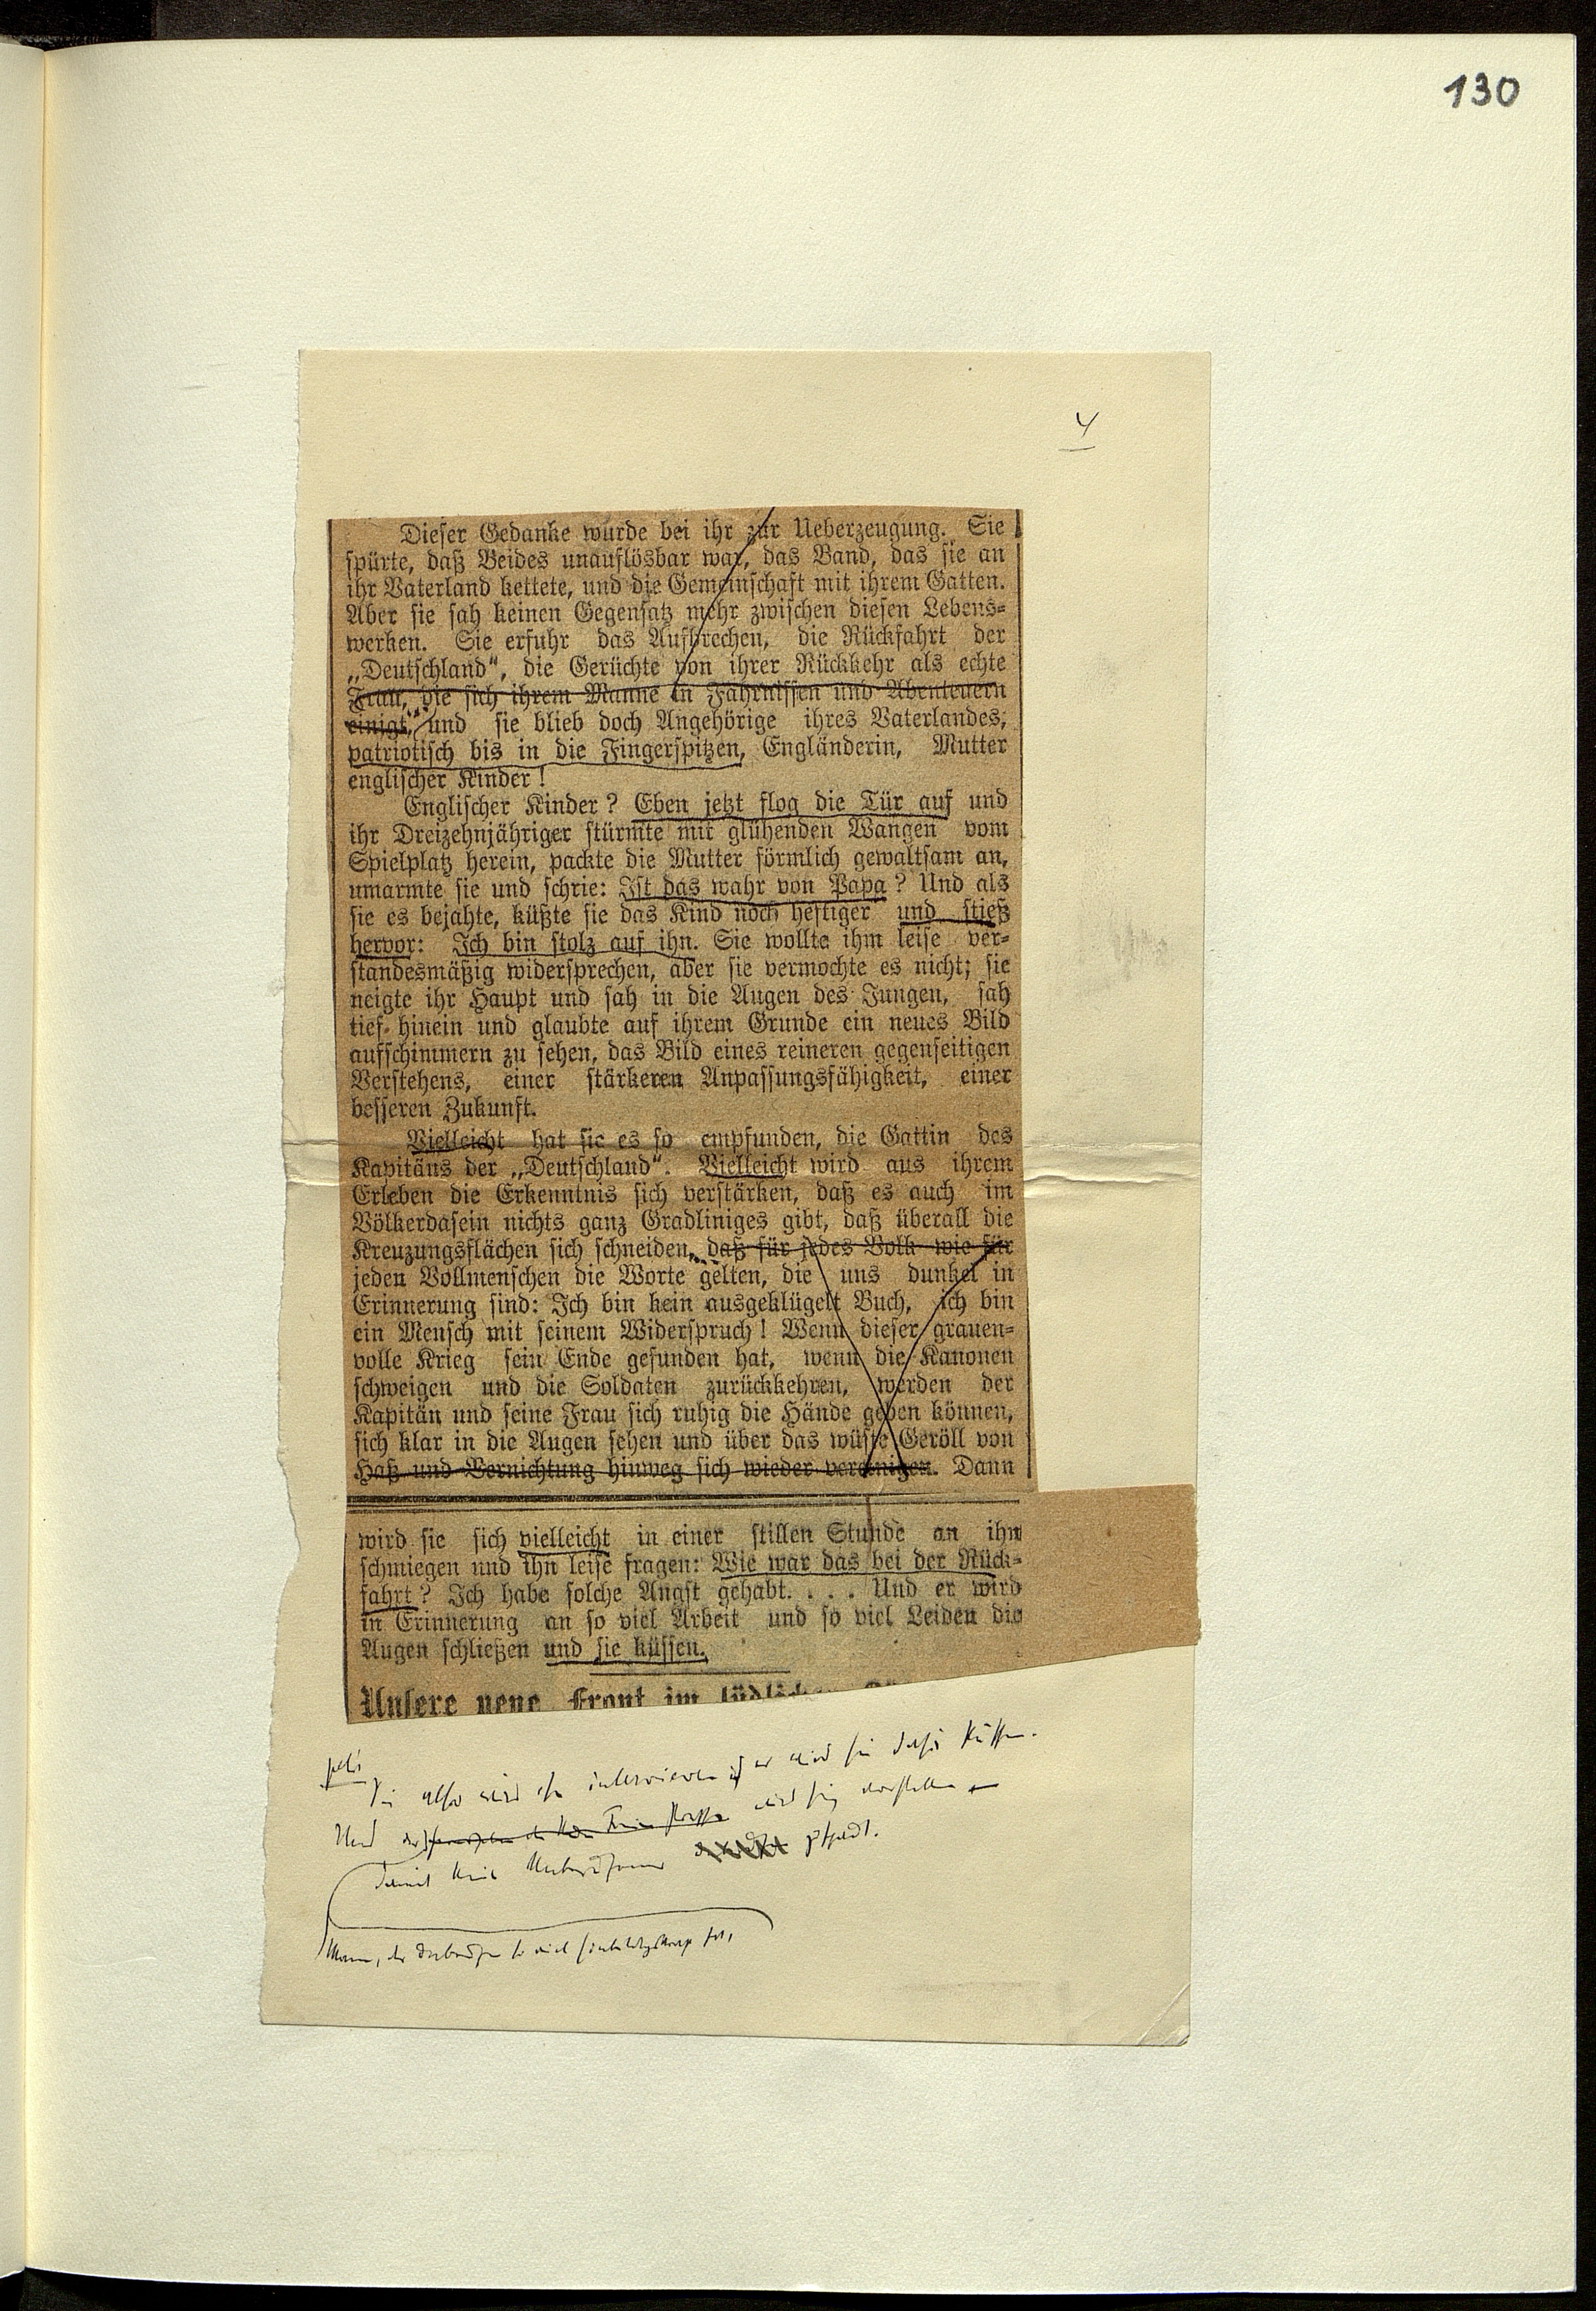 130
4
Dieser Gedanke wurde bei ihr zur Ueberzeugung. Sie
spürte, daß Beides unauflösbar war, das Band, das sie an
ihr Vaterland kettete, und die Gemeinschaft mit ihrem Gatten.
Aber sie sah keinen Gegensatz mehr zwischen diesen Lebens-
werken. Sie erfuhr das Aufbrechen, die Rückfahrt der
„Deutschland“, die Gerüchte von ihrer Rückkehr als echte
Frau, die sich ihrem Manne in Fährnissen und Abenteuern
einigt, und sie blieb doch Angehörige ihres Vaterlandes,
patriotisch bis in die Fingerspitzen, Engländerin, Mutter
englischer Kinder!
Englischer Kinder? Eben jetzt flog die Tür auf und
ihr Dreizehnjähriger stürmte mit glühenden Wangen vom
Spielplatz herein, packte die Mutter förmlich gewaltsam an,
umarmte sie und schrie: Ist das wahr von Papa? Und als
sie es bejahte, küßte sie das Kind noch heftiger und stieß
hervor: Ich bin stolz auf ihn. Sie wollte ihm leise ver-
standesmäßig widersprechen, aber sie vermochte es nicht; sie
neigte ihr Haupt und sah in die Augen des Jungen, sah
tief hinein und glaubte auf ihrem Grunde ein neues Bild
aufschimmern zu sehen, das Bild eines reineren gegenseitigen
Verstehens, einer stärkeren Anpassungsfähigkeit, einer
besseren Zukunft.
Vielleicht hat sie es so empfunden, die Gattin des
Kapitäns der „Deutschland“. Vielleicht wird aus ihrem
Erleben die Erkenntnis sich verstärken, daß es auch im
Völkerdasein nichts ganz Gradliniges gibt, daß überall die
Kreuzungsflächen sich schneiden, daß für jedes Volk wie für
jeden Vollmenschen die Worte gelten, die uns dunkel in
Erinnerung sind: Ich bin kein ausgeklügelt Buch, ich bin
ein Mensch mit seinem Widerspruch! Wenn dieser grauen-
volle Krieg sein Ende gefunden hat, wenn die Kanonen
schweigen und die Soldaten zurückkehren, werden der
Kapitän und seine Frau sich ruhig die Hände geben können,
sich klar in die Augen sehen und über das wüste Geröll von
Haß und Vernichtung hinweg sich wieder vereinigen. Dann
wird sie sich vielleicht in einer stillen Stunde an ihn
schmiegen und ihn leise fragen: Wie war das bei der Rück-
fahrt? Ich habe solche Angst gehabt. . . . Und er wird
in Erinnerung an so viel Arbeit und so viel Leiden die
Augen schließen und sie küssen.
Unsere neue Front im südlichen
Sie also wird ihn interviewen er wird sie dafür küssen.
Und wird sich
damit keine
Mann, der